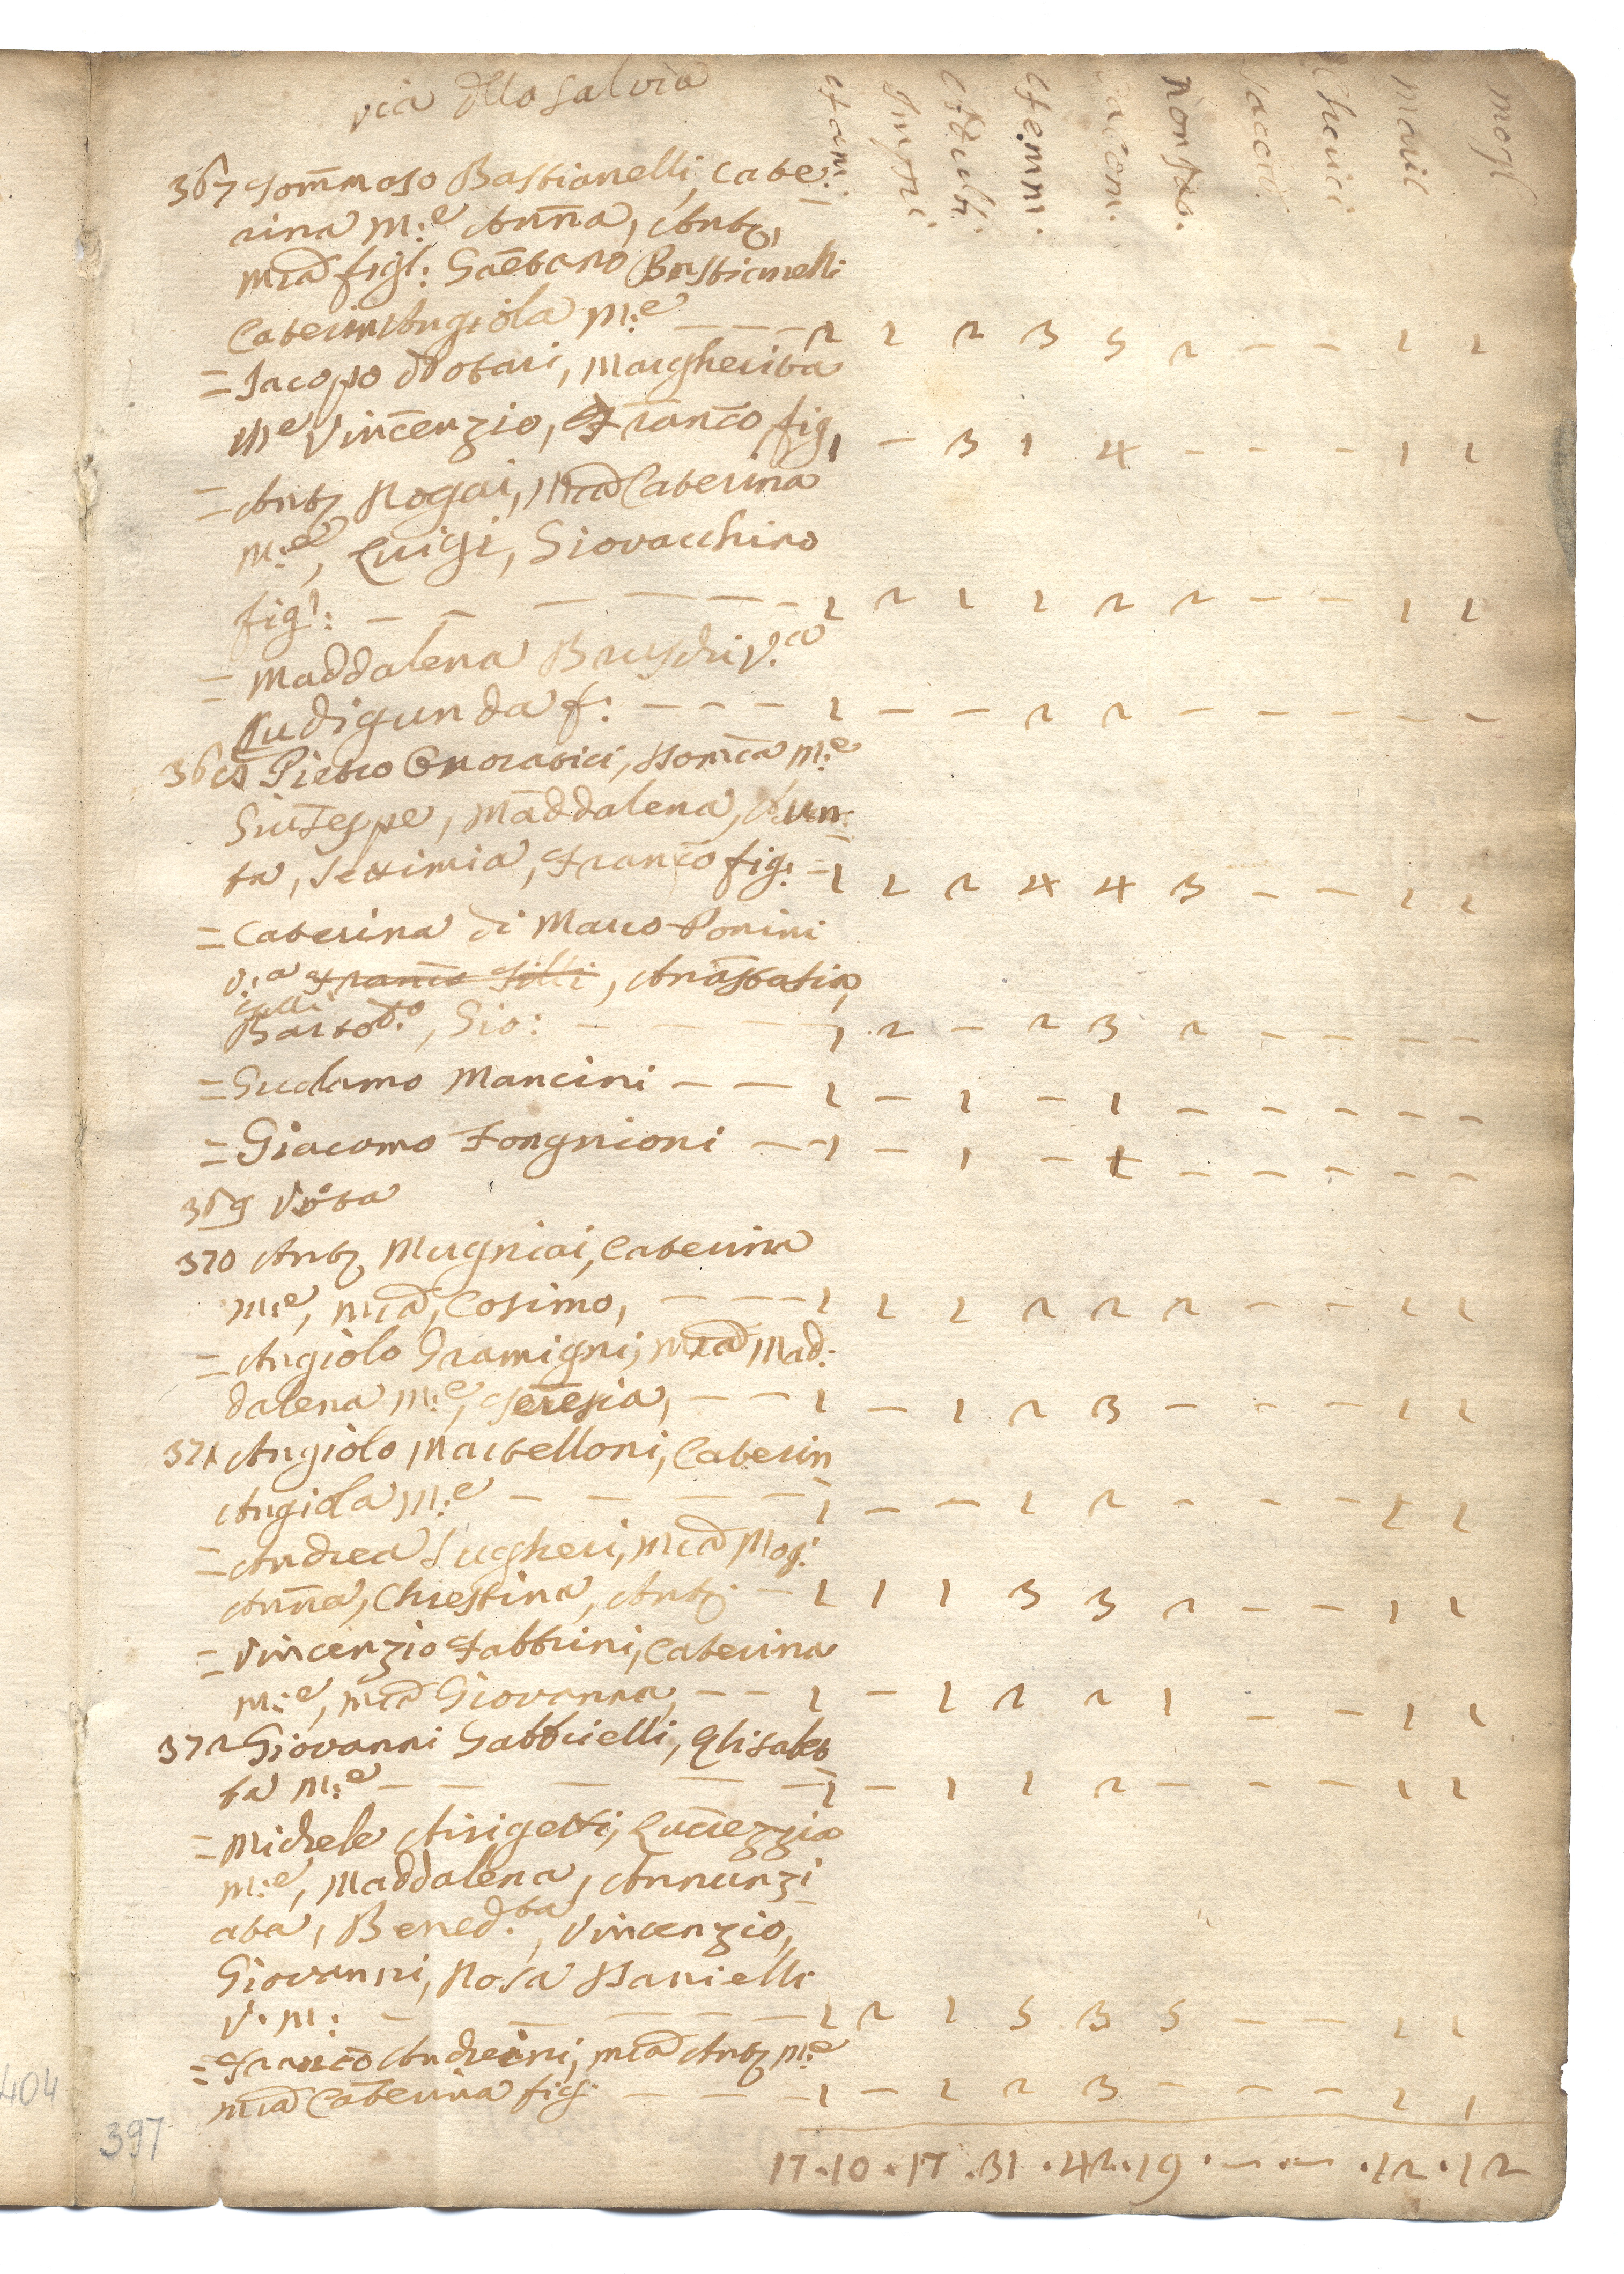 via dlla Salvia
fam: Impu: Adulti. femm. Comun. non Co. Sacerd. Cherici. mari mogl
367 Tommaso Bastianelli, Cate:
rina M:e Anna, Anto,
Mia figl: Gaetano Bastianelli
Caterin Angiola M:e - - - 2 1 2 3 5 2 - - 1 1
= Jacopo Notari, Margherita
M:e Vincenzio, Franco fig, 1 - 3 1 4 - - - 1 1
= Anto Nogai, Mia Caterina
M:e, Luigi, Giovacchino
figl: - - - - - 1 2 1 1 2 2 - - 1 1
= Maddalena Bruschi V.a
Ludigunda f: - - - 1 - - 2 2 - - - - -
368 Pietro Onoratici, Dom:ca M:e
Giuseppe, Maddalena, Nun:
ta, Settimia, Franco fig: = 1 1 2 4 4 3 - - 1 1
= Caterina di Marco Ponini
V:a Franco Gilli, Anastasia,
Gilli
Barto:o, Gio: - - - 1 2 - 2 3 2 - - - -
= Girolamo Mancini - - 1 - 1 - 1 - - - - -
= Giacomo Fongnioni - 1 - 1 - 1 - - - - -
369 Vota
370 Anto Mugniai, Caterina
M:e, Mia, Cosimo, - - - 1 1 1 2 2 2 - - 1 1
= Angiolo Gramigni, Mia Mad:
dalena M:e, Teresia, - - 1 - 1 2 3 - - - 1 1
371 Angiolo Martelloni, Caterin
Angiola M:e - - - - 1 - - 1 2 - - - 1 1
= Andrea Sugheri, Mia Mog:
Anna, Chrestina, Anto: - 1 1 1 3 3 2 - - 1 1
= Vincenzio Fabbrini, Caterina
M:e, Mia Giovanna, - - 1 - 1 2 2 1 - - 1 1
372 Giovanni Gabbrielli, Elisabet
ta M:e - - - - - 1 - 1 1 2 - - - 1 1
= Michele Arigetti, Lucrezzia
M:e, Maddalena, Annunzi
ata, Bened:ta, Vincenzio,
Giovanni, Rosa Danielli
V. M: - - - - 1 2 1 5 3 5 - - 1 1
= Franco Andreini, Mia Anto M:e
Mia Caterina fig: - - - 1 - 1 2 3 - - - 1 1
17 . 10 . 17 . 31 . 42 . 19 . - . - . 12 . 12
404
397